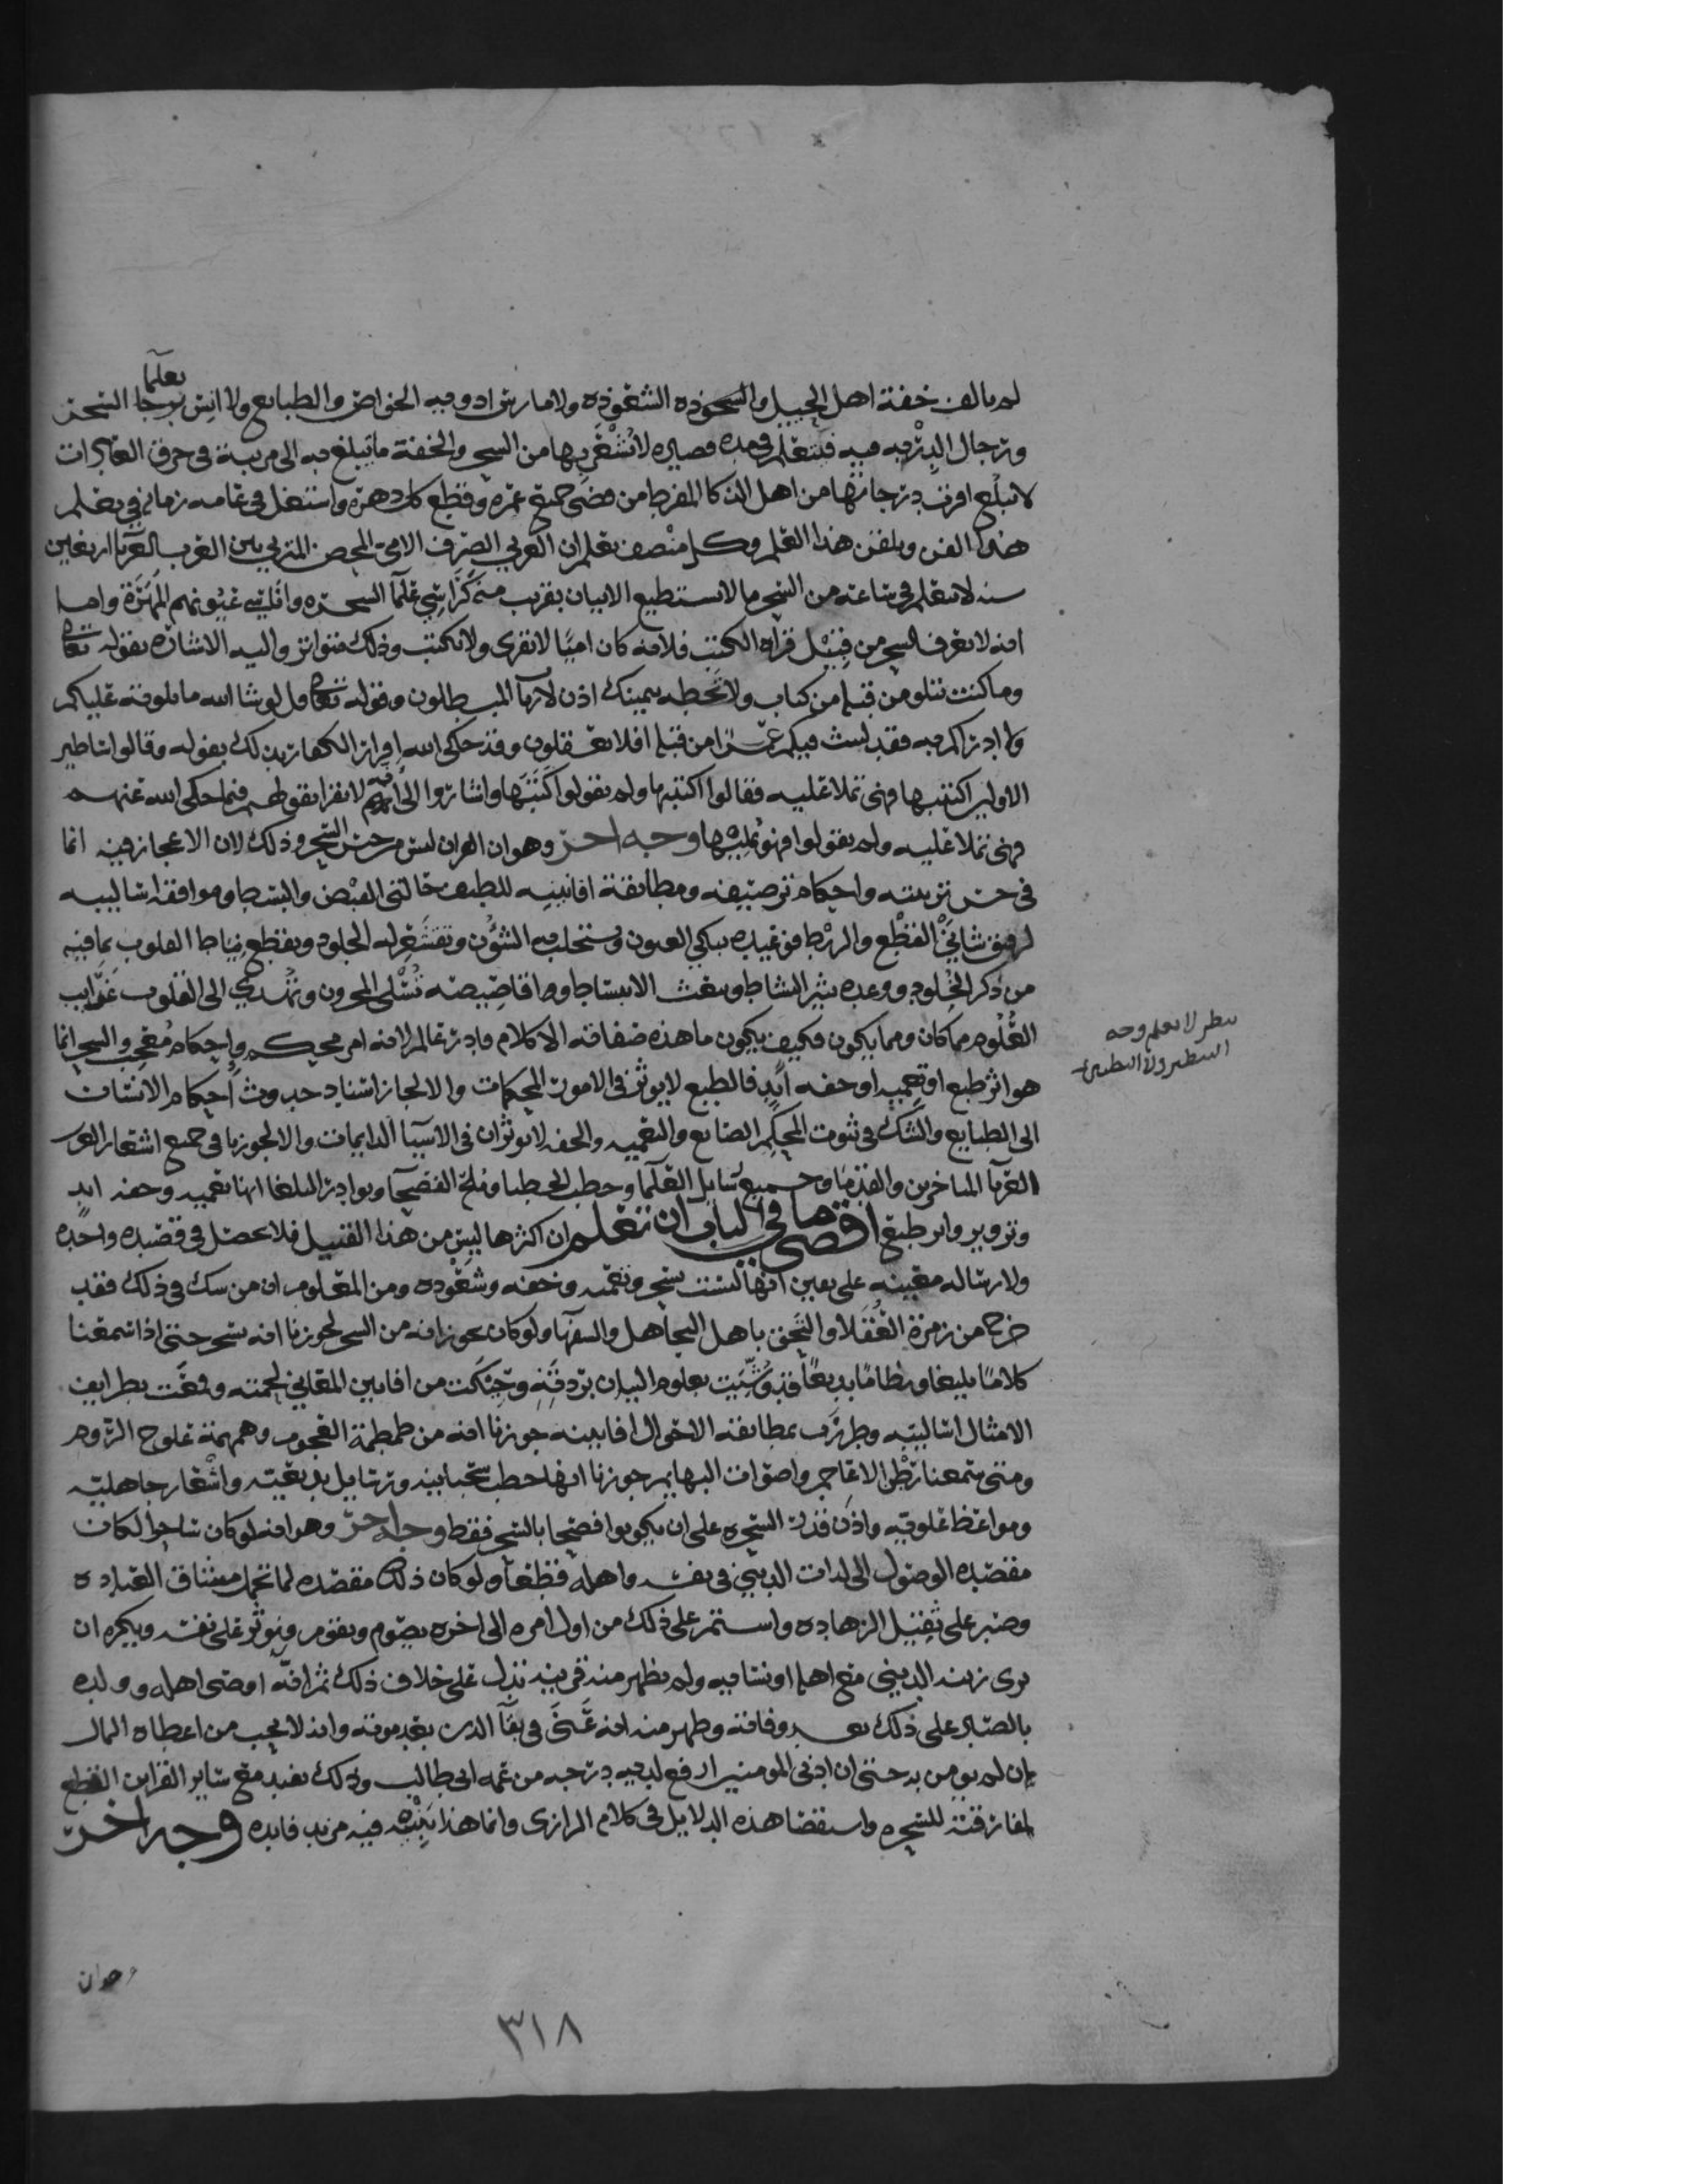 لم يالف خفة اهل الحيل والسحوذه الشعوذه ولا مارس ادويه الخواص والطبايع ولا انس بعلما السحر
ورجال الدربه فيه فيتعلم في مده قصيره لا يشعر بها من السحر والخفة ما يبلغ به الى مرتبة في خرق العادات
لا تبلغ اقرب درجاتها من اهل الذكا المفرط من مضى جميع عمره وقطع كل دهره واشتغل في عامه زمانه في تعلم
هذا الفن وتلقن هذا العلم وكل منصف يعلم ان العربي الصرف الامي المحض المتربي بين العرب العربا اربعين
سنه لا يتعلم في ساعته من السحر ما لا يستطيع الاتيان بقريب منه علما السحره
انه لا يعرف السحر من قبيل قراه الكتب فلانه كان اميا لا يقرى ولا يكتب وذلك متواتر واليه الاشاره بقوله تعالى
وما كنت تتلو من قبله من كتاب ولا تخطه بيمينك اذن لارتاب المبطلون وقوله تعالى قل لو شا الله ما تلوته عليكم
ولا ادراكم به فقد لبثت فيكم عمرا من قبله افلا تعقلون وقد حكى الله اقرار الكفار بذلك بقوله وقالوا اساطير
الاولين اكتتبها فهي تملا عليه فقالوا اكتتبها ولم يقولوا كتبها واشاروا الى انه لا يقرا بقولهم فيما حكى الله عنهم
فهي تملا عليه ولم يقولوا فهو يمليها وجه اخر وهو ان القران ليس من جنس السحر وذلك لان الاعجاز فيه انما
في حسن تزيينه واحكام ترصيفه ومطابقة افانينه للطيف حالتي القبض والبسط وموافقه اساليبه
لرقيق شاني القطع والربط فوعيده يبكي العيون ويستحلب به الشؤن وتقشعر له الجلود ويقطع نياط القلوب بما فيه
من ذكر الخلود ووعده يثير النشاط ويبعث الانبساط واقاصيصه تسلي المحزون وتهدي الى القلوب غرايب
العلوم مما كان ومما يكون فكيف يكون ما هذه صفاته الا كلام قادر عالم لانه امر محكم واحكام معجب والسحر انما
هو اثر طبع او تعميه او خفه ايد فالطبع لا يوثر في الامور المحكمات والا لجاز اسناد حدوث احكام الانسان
الى الطبايع والشك في ثبوت المحكم الصانع والتعميه والخفه لا يوثران في الاشيا الدايمات والا لجوزنا في جميع اشعار العرب
العربا المتاخرين والقدما وجميع رسايل العلما وخطب الخطبا وملح الفصحا ونوادر البلغا انها تعميه وخفه ايد
وتزوير واثر طبع اقصى ما في الباب ان تعلم ان اكثرها ليس من هذا القبيل فلا يحصل في قصيده واحده
ولا رساله معينه على يعين انها ليست بسحر وتعميه وخفه وشعوذه ومن المعلوم ان من شك في ذلك فقد
خرج من زمرة العقلا والتحق باهل التجاهل والسفها ولو كان يجوز انه من السحر لجوزنا انه سحر حتى اذا سمعنا
كلاما بليغا ونظاما بديعا قد وشيت بعلوم البيان بردته وحيكت من افانين المعاني لحمته ورقمت بطرايف
الامثال اساليبه وطرزت بمطابقه الاحوال افانينه جوزنا انه من طمطمة العجوم وهمهمة علوج الروم
ومتى سمعنا رطن الاعاجم واصوات البهايم جوزنا انها خطب سحبانيه ورسايل بديعيه واشعار جاهليه
ومواعظ علويه واذن قدرت السحره على ان يكونوا فصحا بالسحر فقط وجه اخر وهو انه لو كان ساحرا لكان
مقصده الوصول الى لذات الدنيا في نفسه واهله قطعا ولو كان ذلك مقصده لما تحمل مشاق العباده
وصبر على ثقيل الزهاده واستمر على ذلك من اول امره الى اخره يصوم ويقوم ويوثر على نفسه ويكره ان
يرى زينه الدنيا مع اهله او نسايه ولم يظهر منه قرينه تدل على خلاف ذلك ثم انه اوصى اهله وولده
بالصبر على ذلك بعد وفاته وظهر منه انه في بقا الدين بعد موته وانه لا يحب من اعطاه المال
ان لم يومن به حتى ان ادنى المومنين ارفع لديه درجه من عمه ابي طالب وذلك يفيد مع ساير القراين القطع
لمفارقته للسحره واستقصا هذه الدلايل في كلام الرازي وانما هذا نبذه فيه مزيد فايده وجه اخر
ينظر لا يعلم وجه
وهو ان
٣١٨